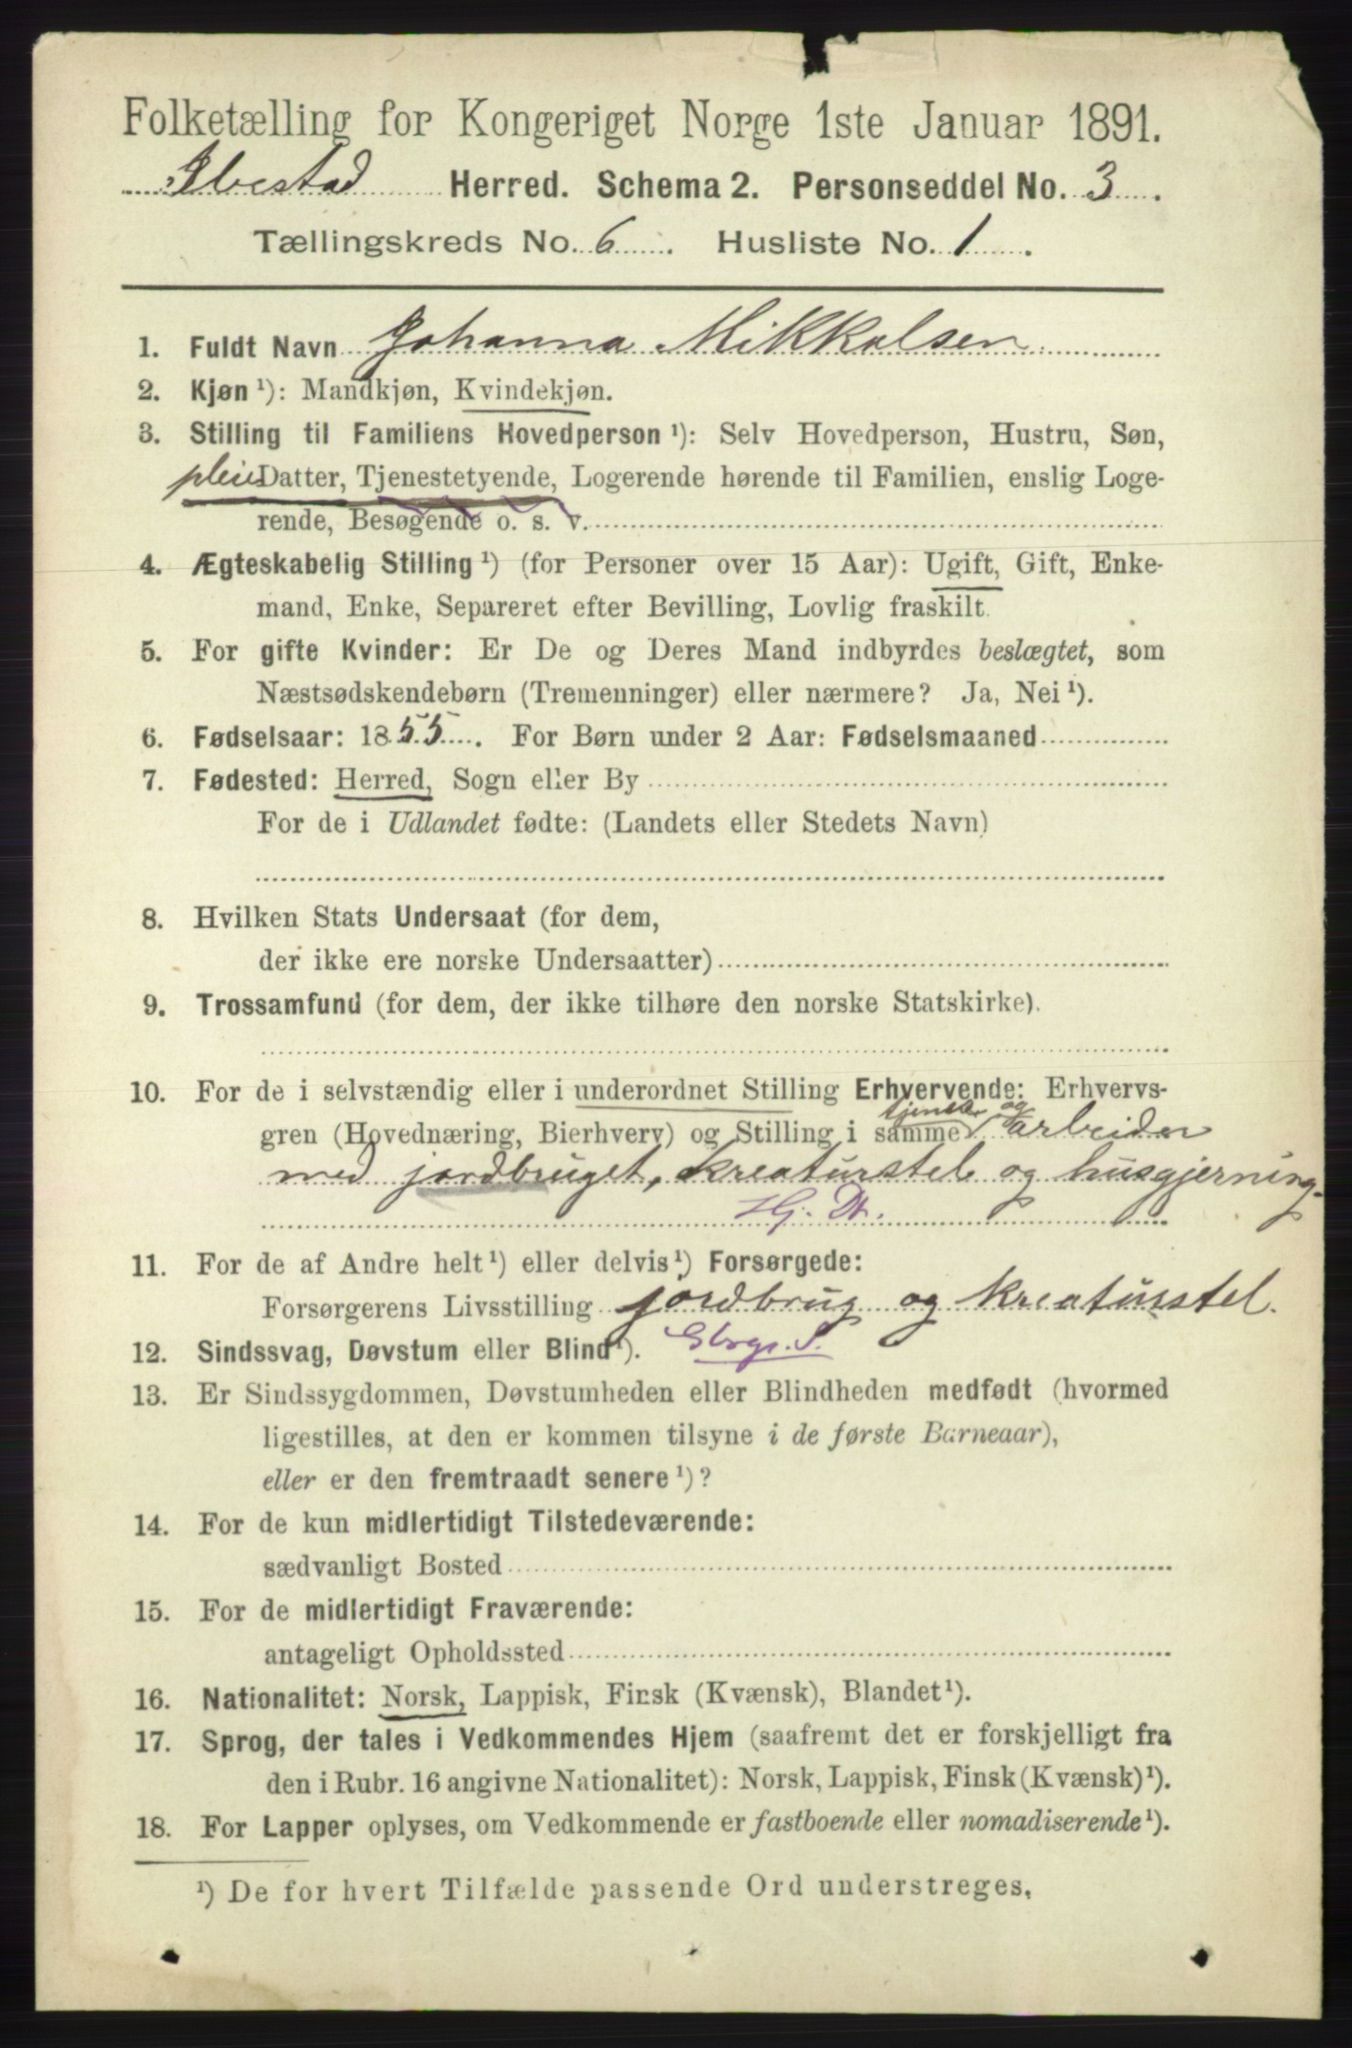 Folketælling for Kongeriget Norge 1ste Januar 1891.
Ibestad Herred. Schema 2. Personseddel No. 3.
Tællingskreds No. 6. Husliste No. 1.
1. Fuldt Navn Johanna Mikkalsen
2. Kjøn ¹): Mandkjøn, Kvindekjøn.
3. Stilling til Familiens Hovedperson ¹): Selv Hovedperson, Hustru, Søn,
pleie Datter, Tjenestetyende, Logerende hørende til Familien, enslig Loge-
rende, Besøgende o. s. v.
4. Ægteskabelig Stilling ¹) (for Personer over 15 Aar): Ugift, Gift, Enke-
mand, Enke, Separeret efter Bevilling, Lovlig fraskilt.
5. For gifte Kvinder: Er De og Deres Mand indbyrdes beslægtet, som
Næstsødskendebørn (Tremenninger) eller nærmere? Ja, Nei ¹).
6. Fødselsaar: 1855. For Børn under 2 Aar: Fødselsmaaned
7. Fødested: Herred, Sogn eller By
For de i Udlandet fødte: (Landets eller Stedets Navn)
8. Hvilken Stats Undersaat (for dem,
der ikke ere norske Undersaatter)
9. Trossamfund (for dem, der ikke tilhøre den norske Statskirke).
10. For de i selvstændig eller i underordnet Stilling Erhvervende: Erhvervs-
tjener og
gren (Hovednæring, Bierhverv) og Stilling i samme arbeider
med jordbruget, kreaturstel og husgjerning.
H. Dt.
11. For de af Andre helt ¹) eller delvis ¹) Forsørgede:
Forsørgerens Livsstilling jordbrug og kreaturstel.
12. Sindssvag, Døvstum eller Blind ¹). Gbrgr. S.
13. Er Sindssygdommen, Døvstumheden eller Blindheden medfødt (hvormed
ligestilles, at den er kommen tilsyne i de første Barneaar),
eller er den fremtraadt senere ¹)?
14. For de kun midlertidigt Tilstedeværende:
sædvanligt Bosted
15. For de midlertidigt Fraværende:
antageligt Opholdssted
16. Nationalitet: Norsk, Lappisk, Finsk (Kvænsk), Blandet ¹).
17. Sprog, der tales i Vedkommendes Hjem (saafremt det er forskjelligt fra
den i Rubr. 16 angivne Nationalitet): Norsk, Lappisk, Finsk (Kvænsk) ¹).
18. For Lapper oplyses, om Vedkommende er fastboende eller nomadiserende ¹).
¹) De for hvert Tilfælde passende Ord understreges.